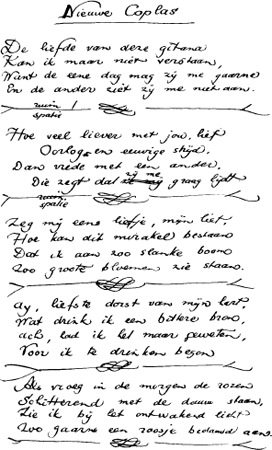 Nieuwe Coplas
De liefde van deze gitana
Kan ik maar niet verstaan,
Want de eene dag mag zij me gaarne
En de ander ziet zij me niet aan.
ruim !
spatie
Hoe veel liever met jou, lief
Oorlog en eeuwige strijd,
Dan vrede met een ander,
Die zegt dat zij me graag lijdt
ruim
spatie
Zeg mij eens liefje, mijn lief,
Hoe kan dit mirakel bestaan
Dat ik aan zoo slanke boom
Zoo groote bloemen zie staan.
Ay, liefste dorst van mijn hert,
Wat drink ik een bittere bron,
ach, had ik het maar geweten,
Voor ik te drinken begon
Als vroeg in de morgen de rozen
Schitterend met de dauw staan,
Zie ik bij het ontwakend licht
Zoo gaarne een roosje bedauwd aan.